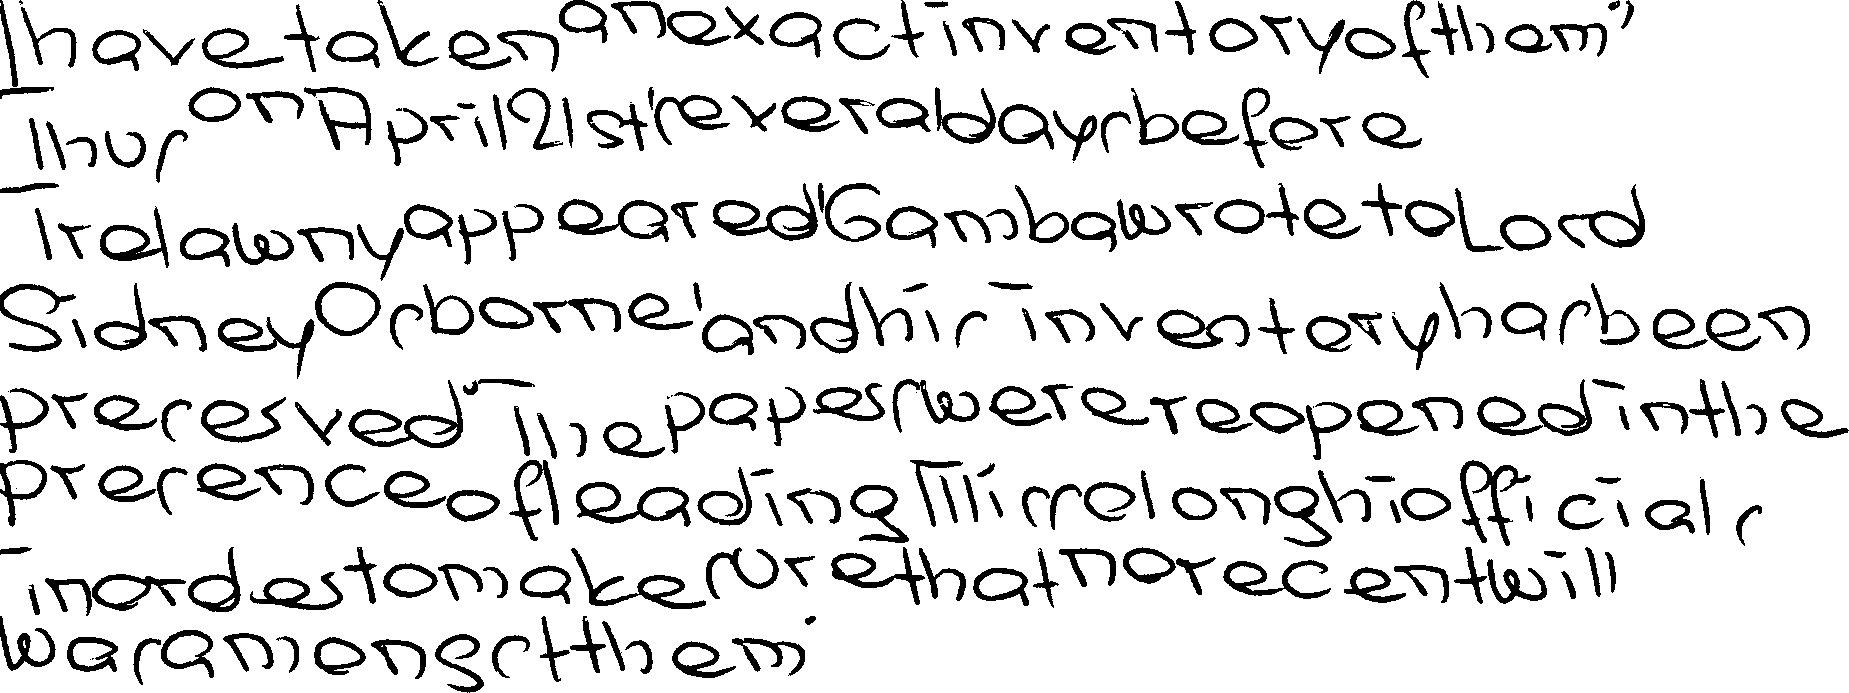 I have taken an exact inventory of them."
Thus on April 21st, several days before
Trelawny appeared, Gamba wrote to Lord
Sidney Osborne, and his inventory has been
preserved. The papers were reopened in the
presence of leading Missolonghi officials
in order to make sure that no recent will
was amongst them.